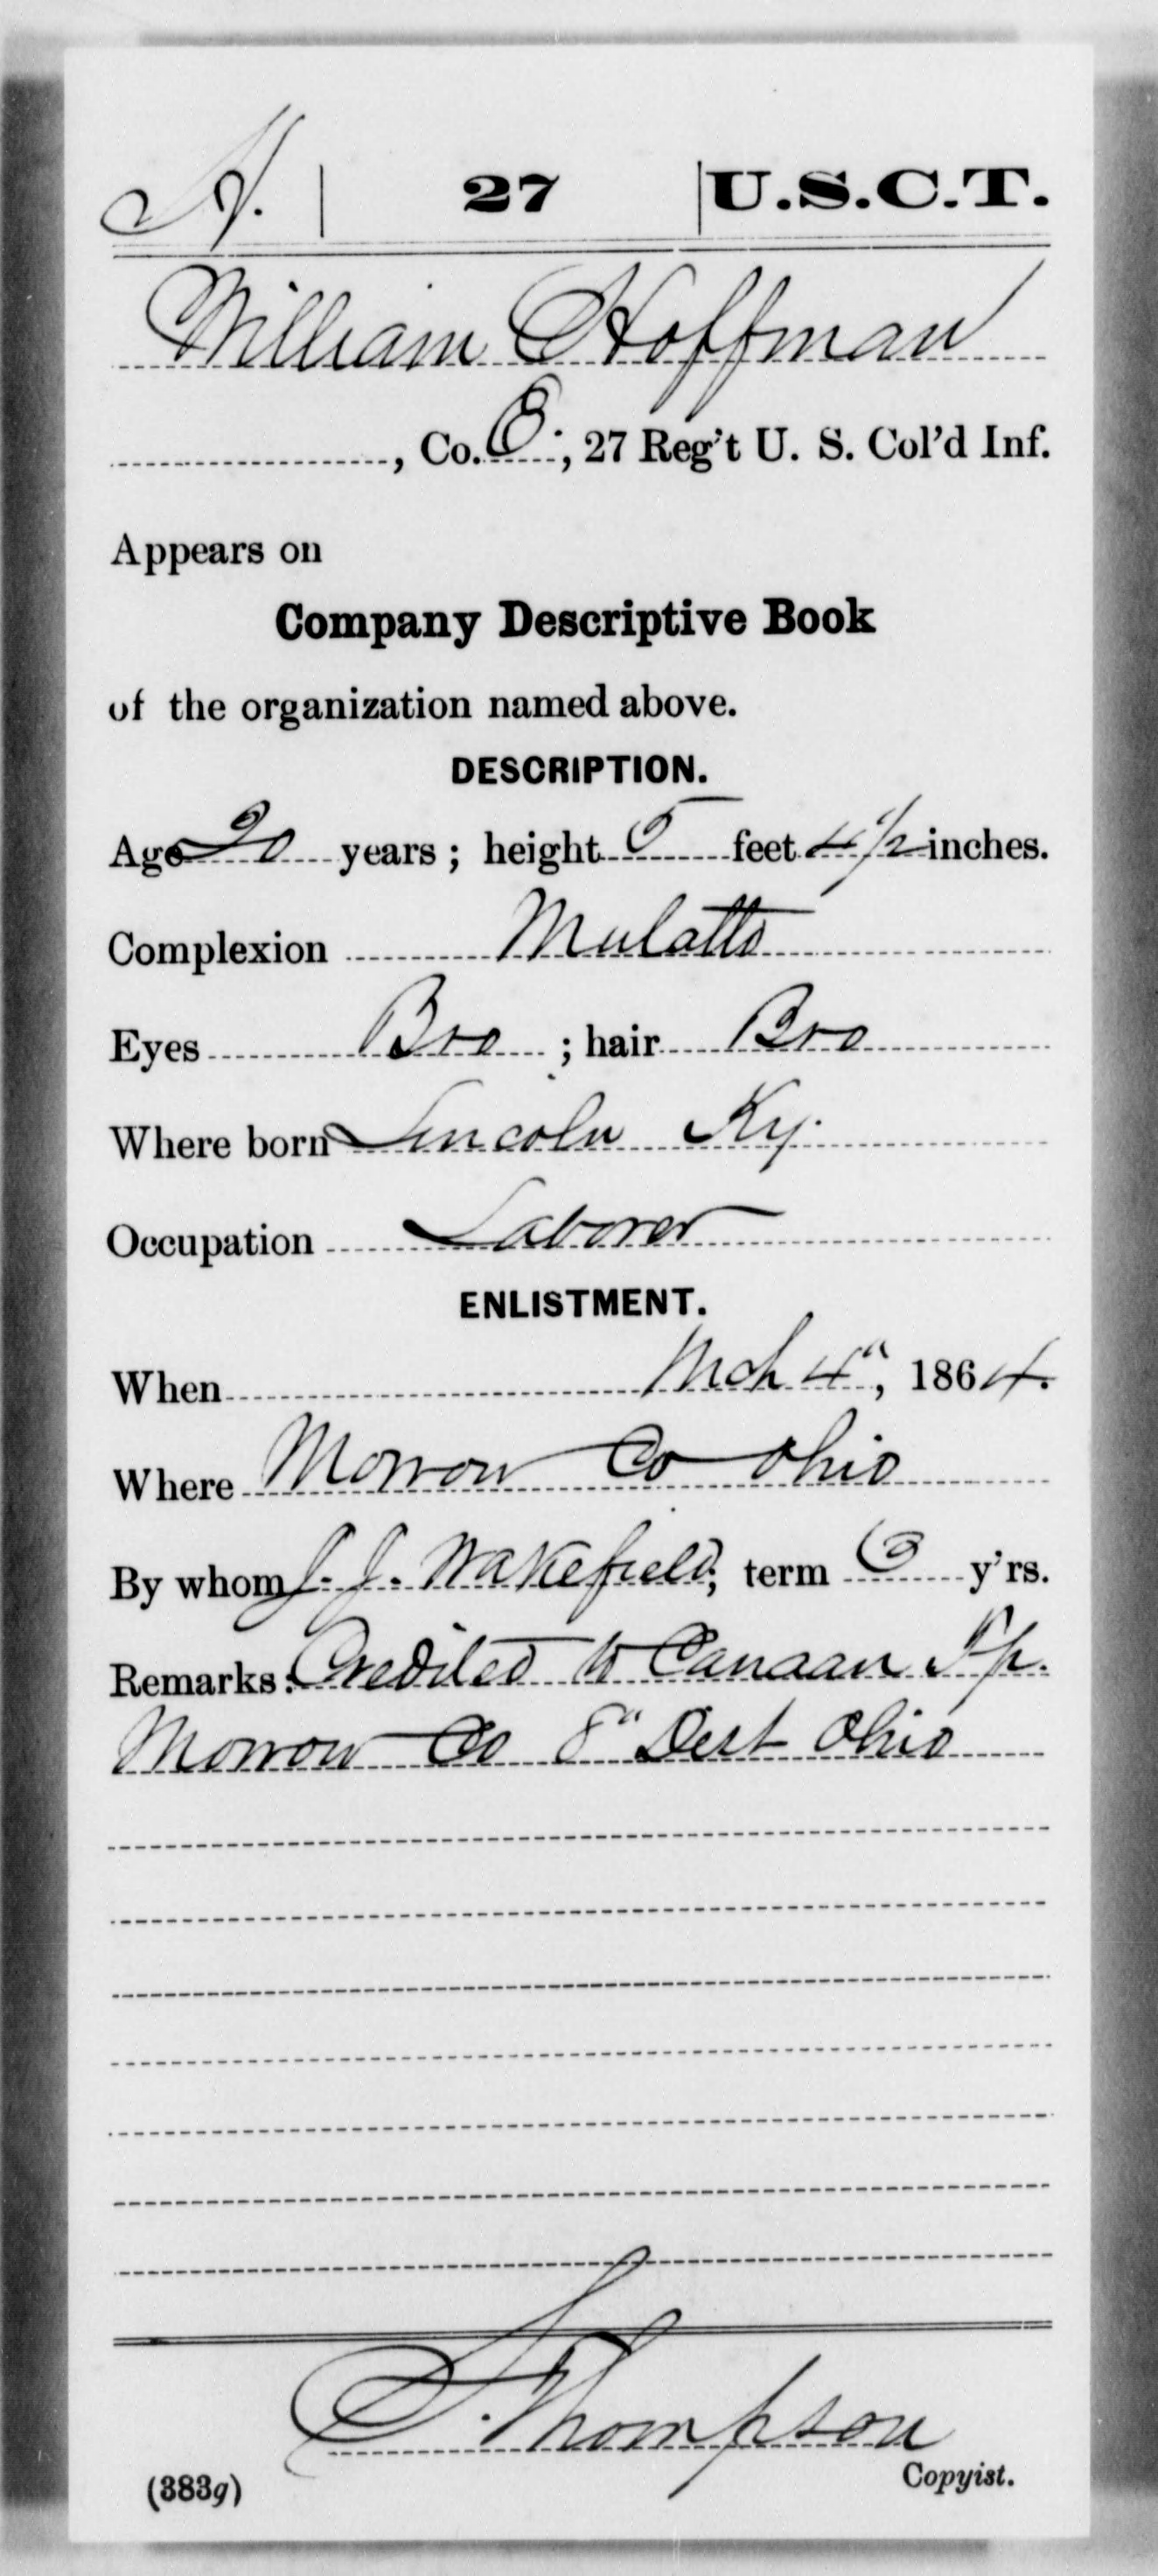 H. | 27 | U.S.C.T.
William Hoffman
, Co. E; 27 Reg't U. S. Col'd Inf.
Appears on
Company Descriptive Book
of the organization named above.
DESCRIPTION.
Age 20 years; height 5 feet 4 1/2 inches.
Complexion Mulatto
Eyes Bro ; hair Bro
Where born Lincoln Ky.
Occupation Laborer
ENLISTMENT.
When Mch 4", 1864.
Where Morrow Co Ohio
By whom J. J. Wakefield; term 3 y'rs.
Remarks: Credited to Canaan Tp.
Morrow Co 8" Dist Ohio
Thompson
(383g) Copyist.